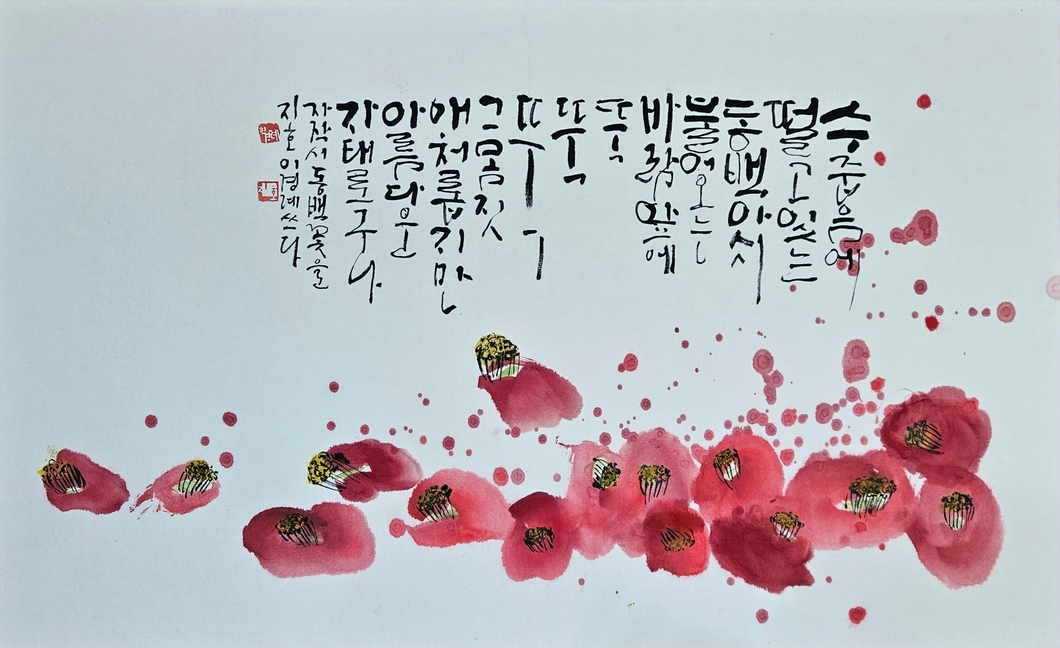 수줍음에
떨고있는
동백아시
불어오는
바람앞에
뚝
뚝
뚝
그몸짓
애처롭지만
아름다운
자태로구나
자작시 동백꽃을
지호 이경례 쓰다